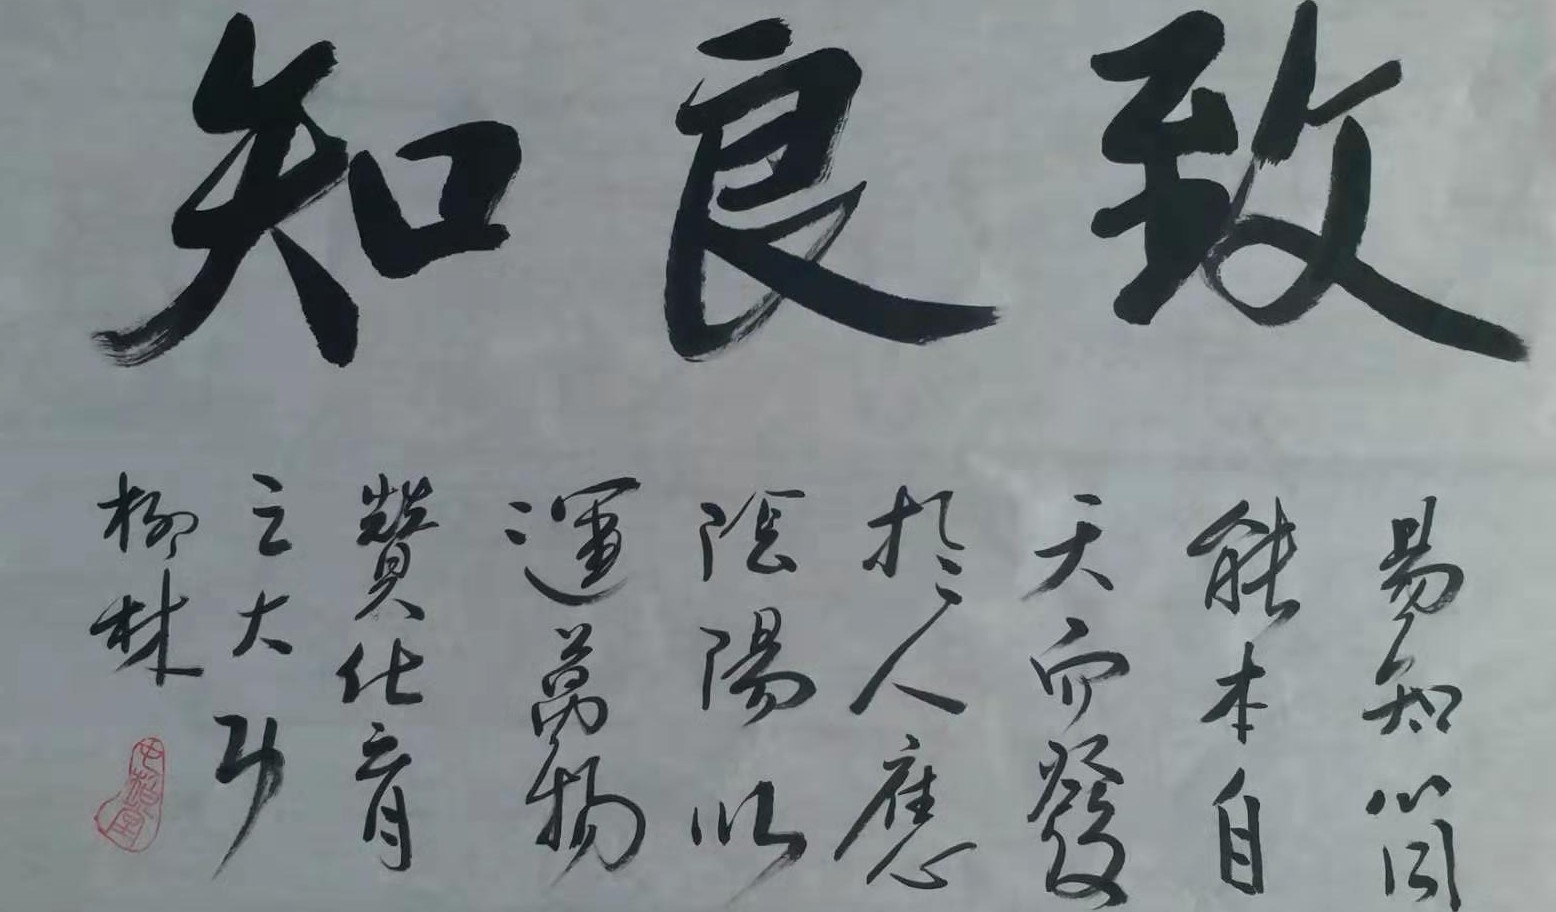 致良知
易知简
能本自
天而發
於人應
陰陽以
運萬物
贊化育
之大
柳林